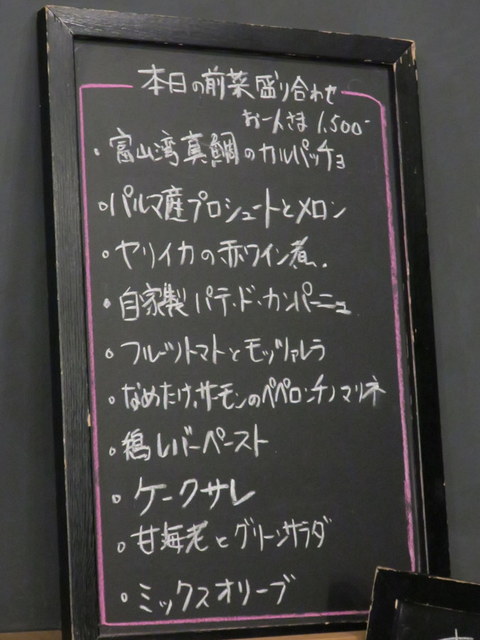 本日の前菜盛り合わせ
お一人さま 1,500-
・富山湾真鯛のカルパッチョ
・パルマ産プロシュートとメロン
・ヤリイカの赤ワイン煮.
・自家製パテ・ド・カンパーニュ
・フルーツトマトとモッツァレラ
・なめたけ、サーモンのペペロンチーノマリネ
・鶏レバーペースト
・ケークサレ
・甘海老とグリーンサラダ
・ミックスオリーブ